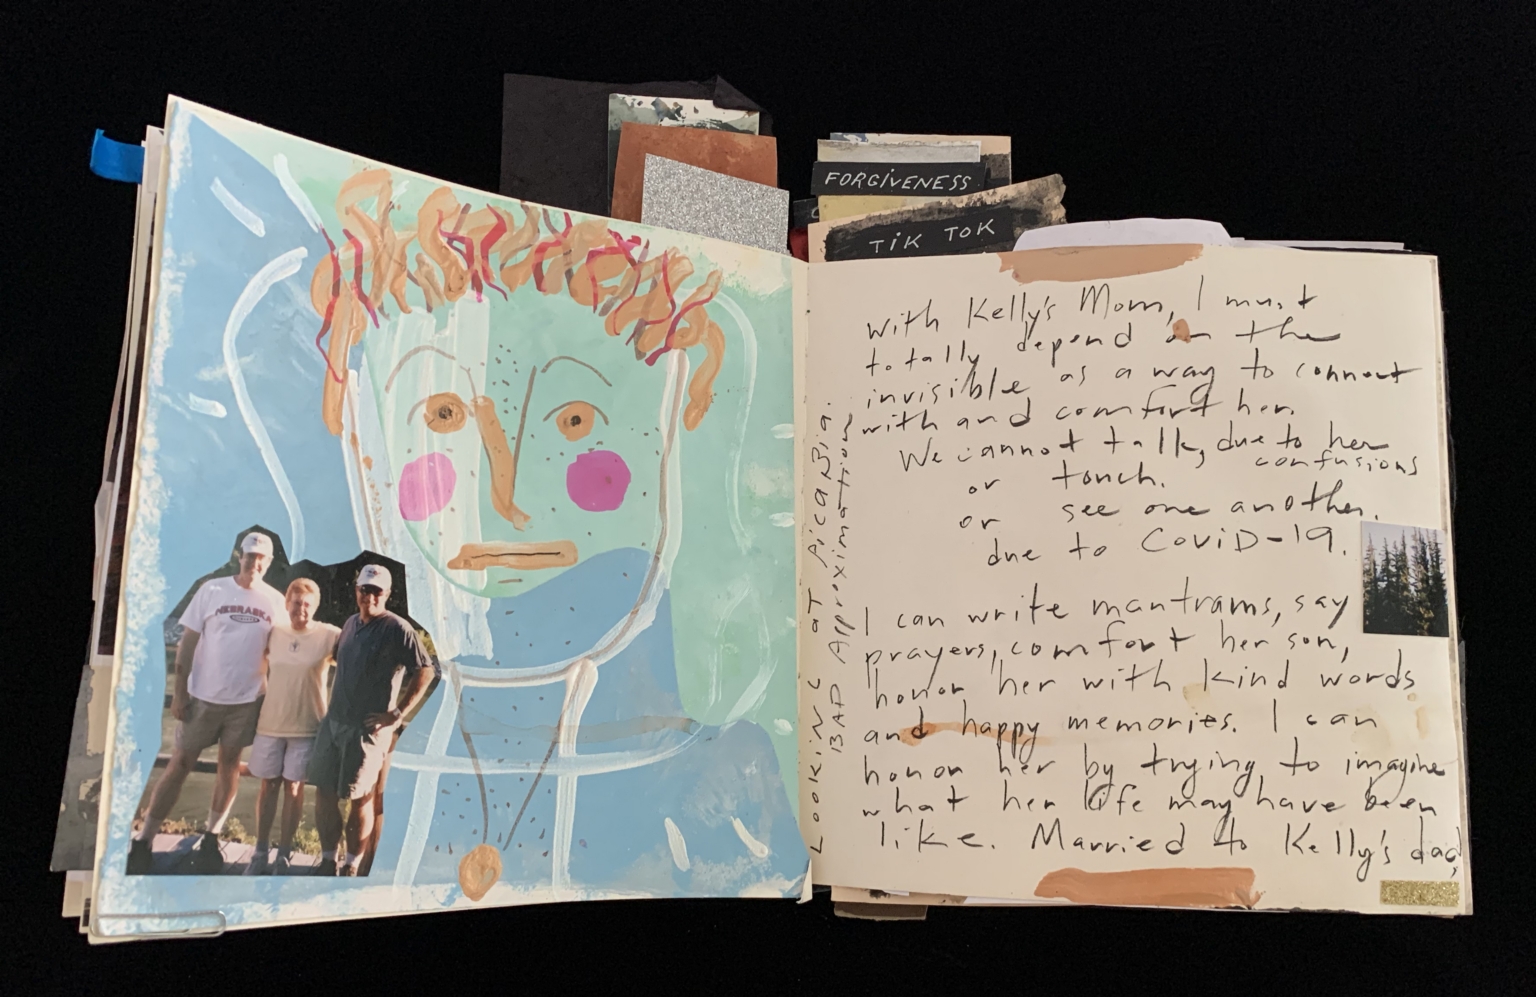 FORGIVENESS
TIK TOK
with Kelly's Mom, I must
totally depend on the
invisible as a way to connect
with and comfort her.
We cannot talk, due to her
confusions
or touch.
or see one another.
due to CoviD-19.
I can write mantrams, say
prayers, comfort her son,
honor her with kind words
and happy memories. I can
honor her by trying to imagine
what her life may have been
like. Married to Kelly's dad,
LOOKING aT PicaBia.
BAD Approximation
NEBRASKA